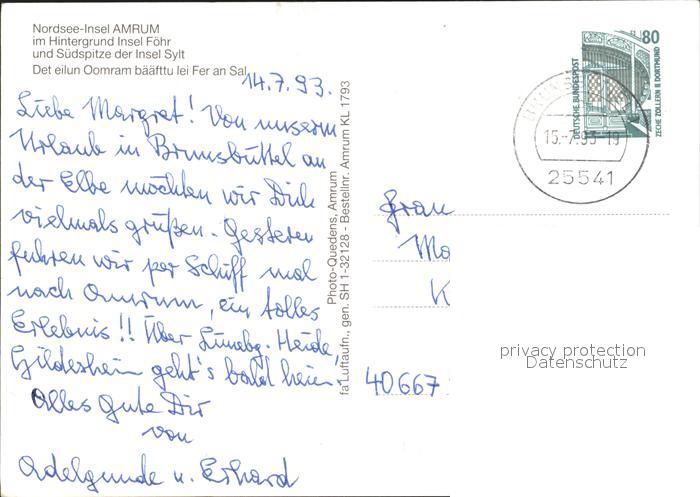 Nordsee-Insel AMRUM
im Hintergrund Insel Föhr
und Südspitze der Insel Sylt
Det eilun Oomram bääfttu lei Fer an Sal
14.7.93.
Liebe Margret! Von unserem
Urlaub in Brunsbüttel an
der Elbe möchten wir Dich
vielmals grüßen. Gestern
fuhren wir per Schiff mal
nach Amrum, ein tolles
Erlebnis!! Über Lünebg. Heide,
Hildesheim geht's bald heim.
Alles Gute Dir
von
Adelgunde u. Erhard
Photo-Quedens, Amrum
fa Luftaufn., gen. SH 1-32128 - Bestellnr. Amrum KL 1793
DEUTSCHE BUNDESPOST
80
ZECHE ZOLLERN II DORTMUND
15.-7.93-19
25541
Frau
Ma
K
40667
privacy protection
Datenschutz